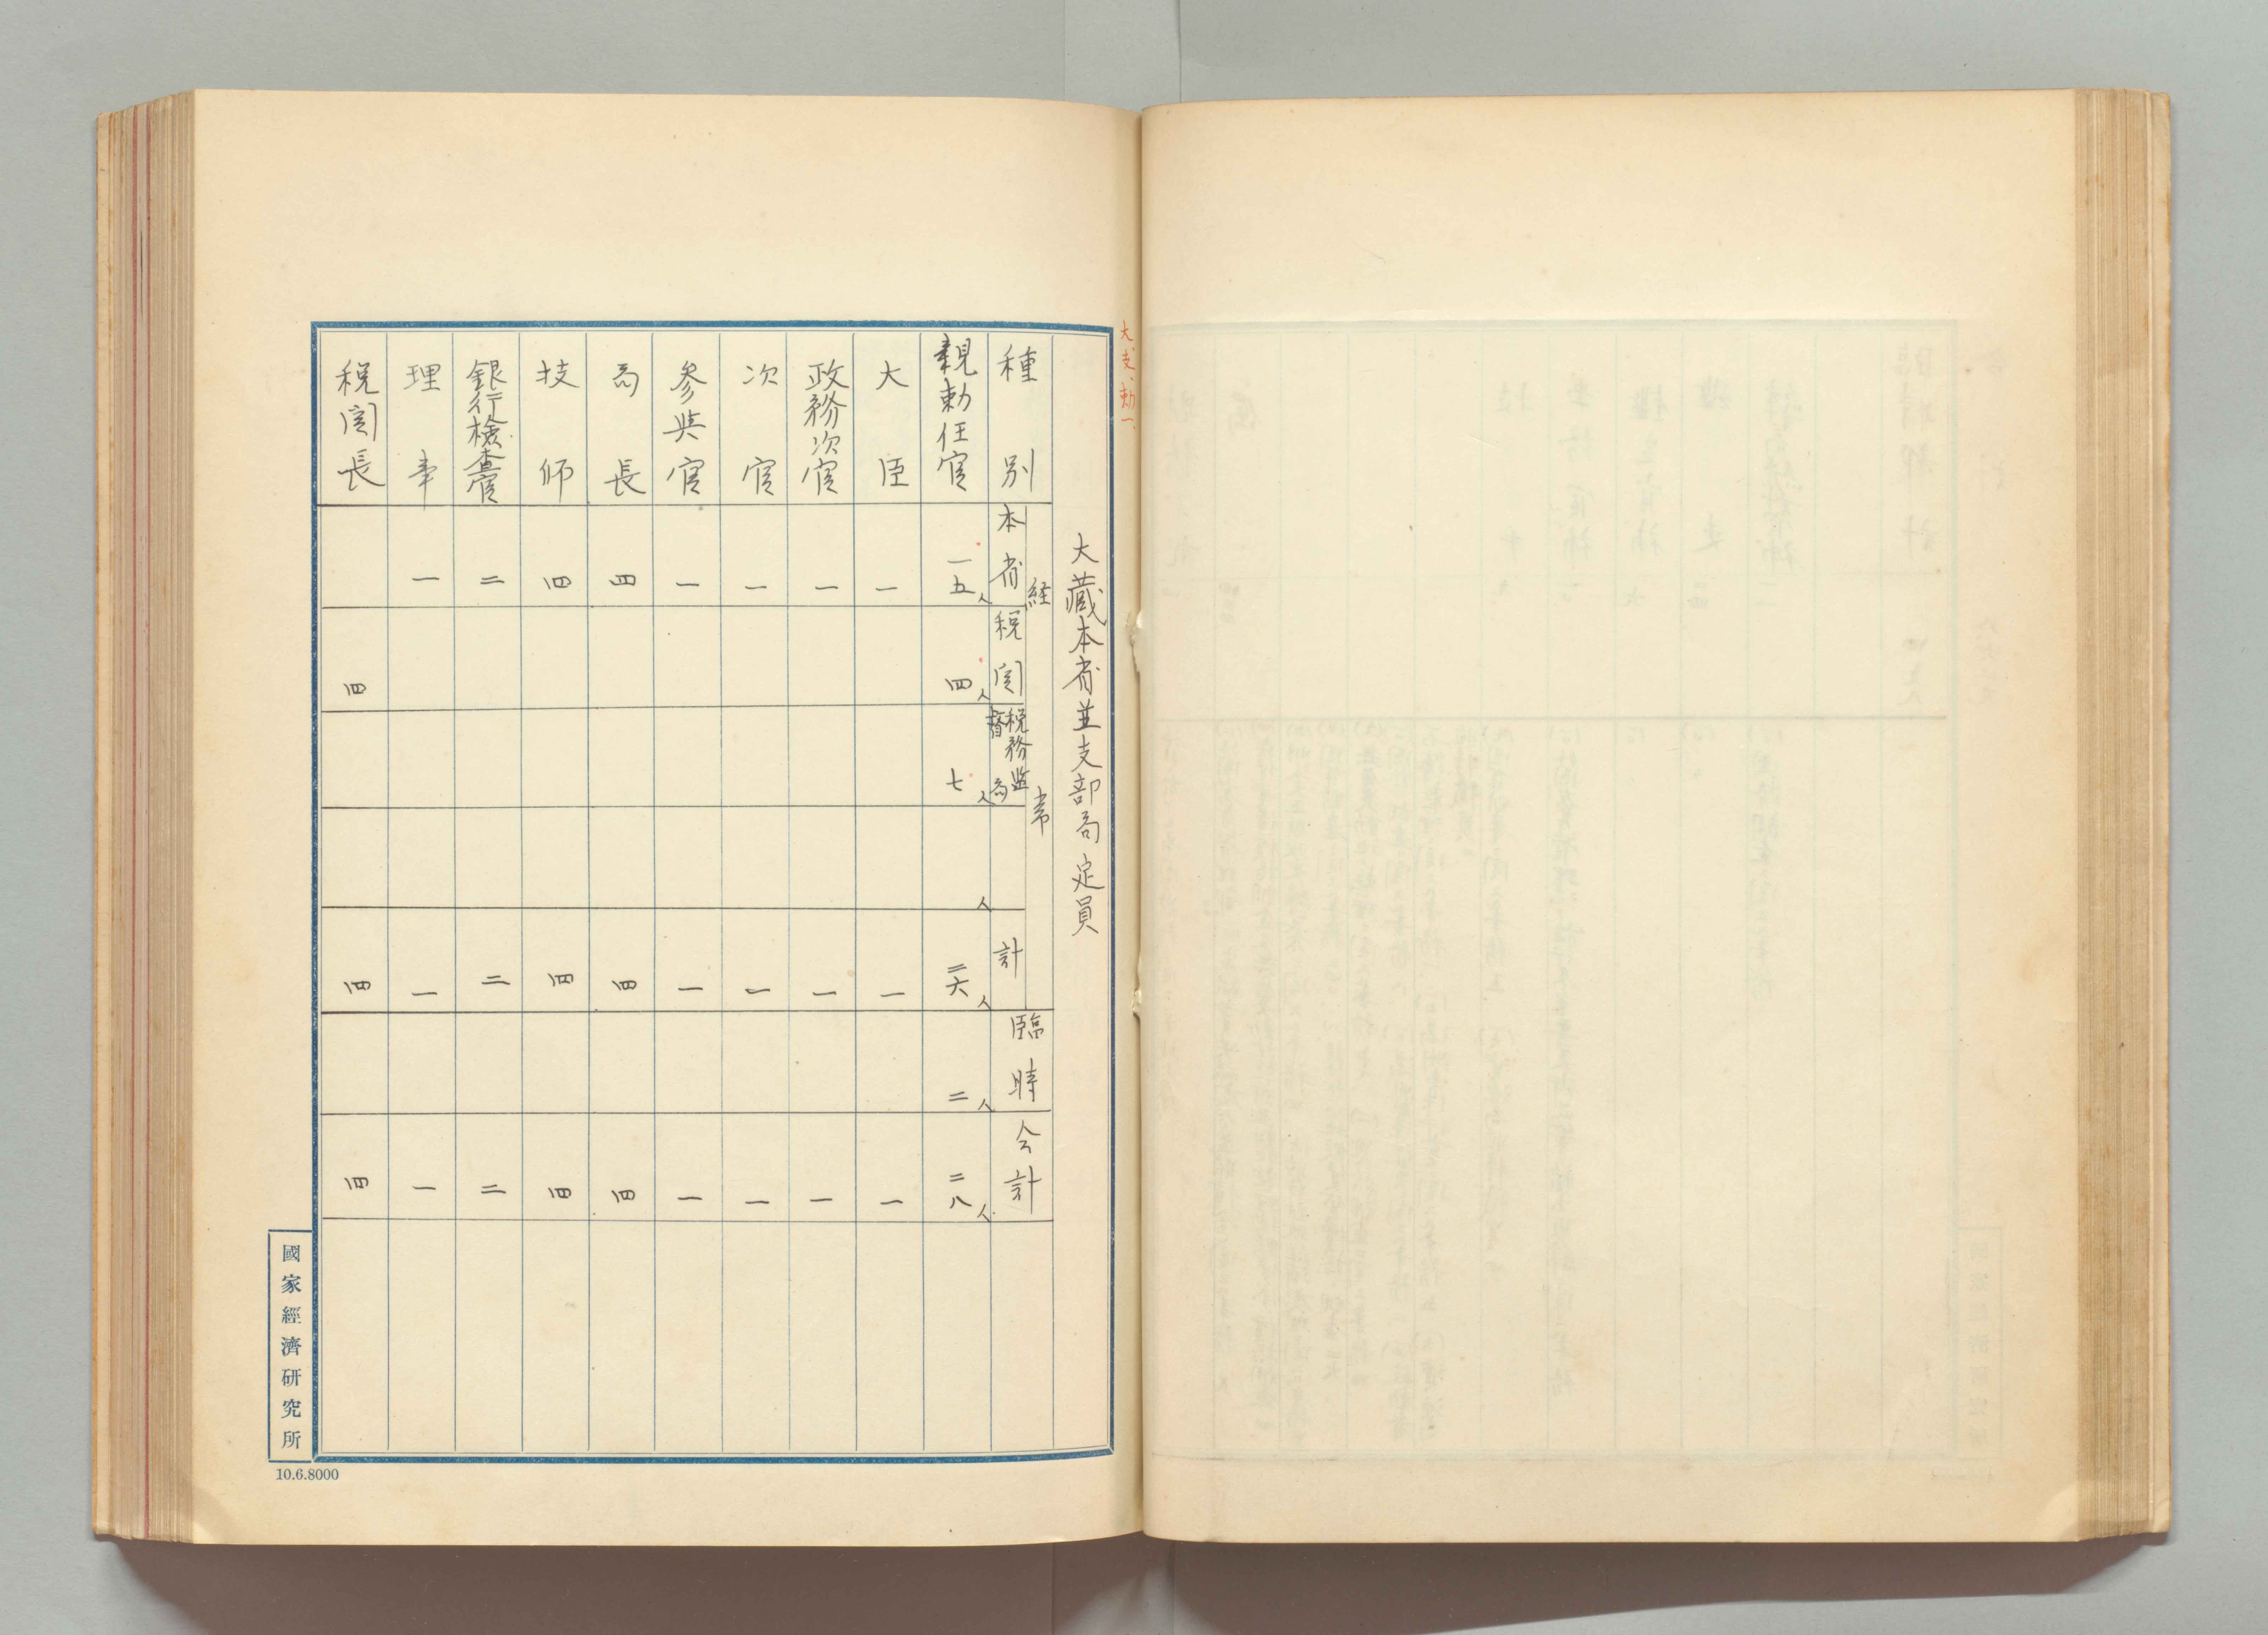 大、支、勅一、
大藏本省並支部局定員
種別 経常 本省 税関 税務監督局 計 臨時 合計
親勅任官 一五人 四人 七人 人 二六人 二人 二八人
大臣 一 一 一
政務次官 一 一 一
次官 一 一 一
参与官 一 一 一
局長 四 四 四
技師 四 四 四
銀行検査官 二 二 二
理事 一 一 一
税関長 四 四 四
國家經濟研究所
10.6.8000